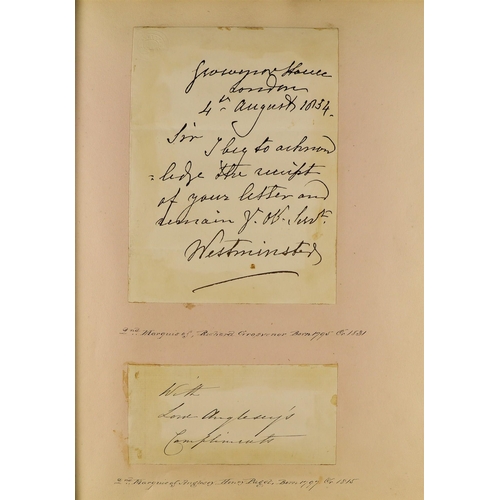 Grosvenor House
London
4th August 1834.
Sir
I beg to acknow
=ledge the receipt
of your letter and
remain Y. Ob. Servt.
Westminster
2nd Marquis of, Richard Grosvenor Born 1795 Cr. 1831
With
Lord Anglesey's
Compliments
2nd Marquis of Anglesey Henry Paget. Born 1797 Cr. 1815